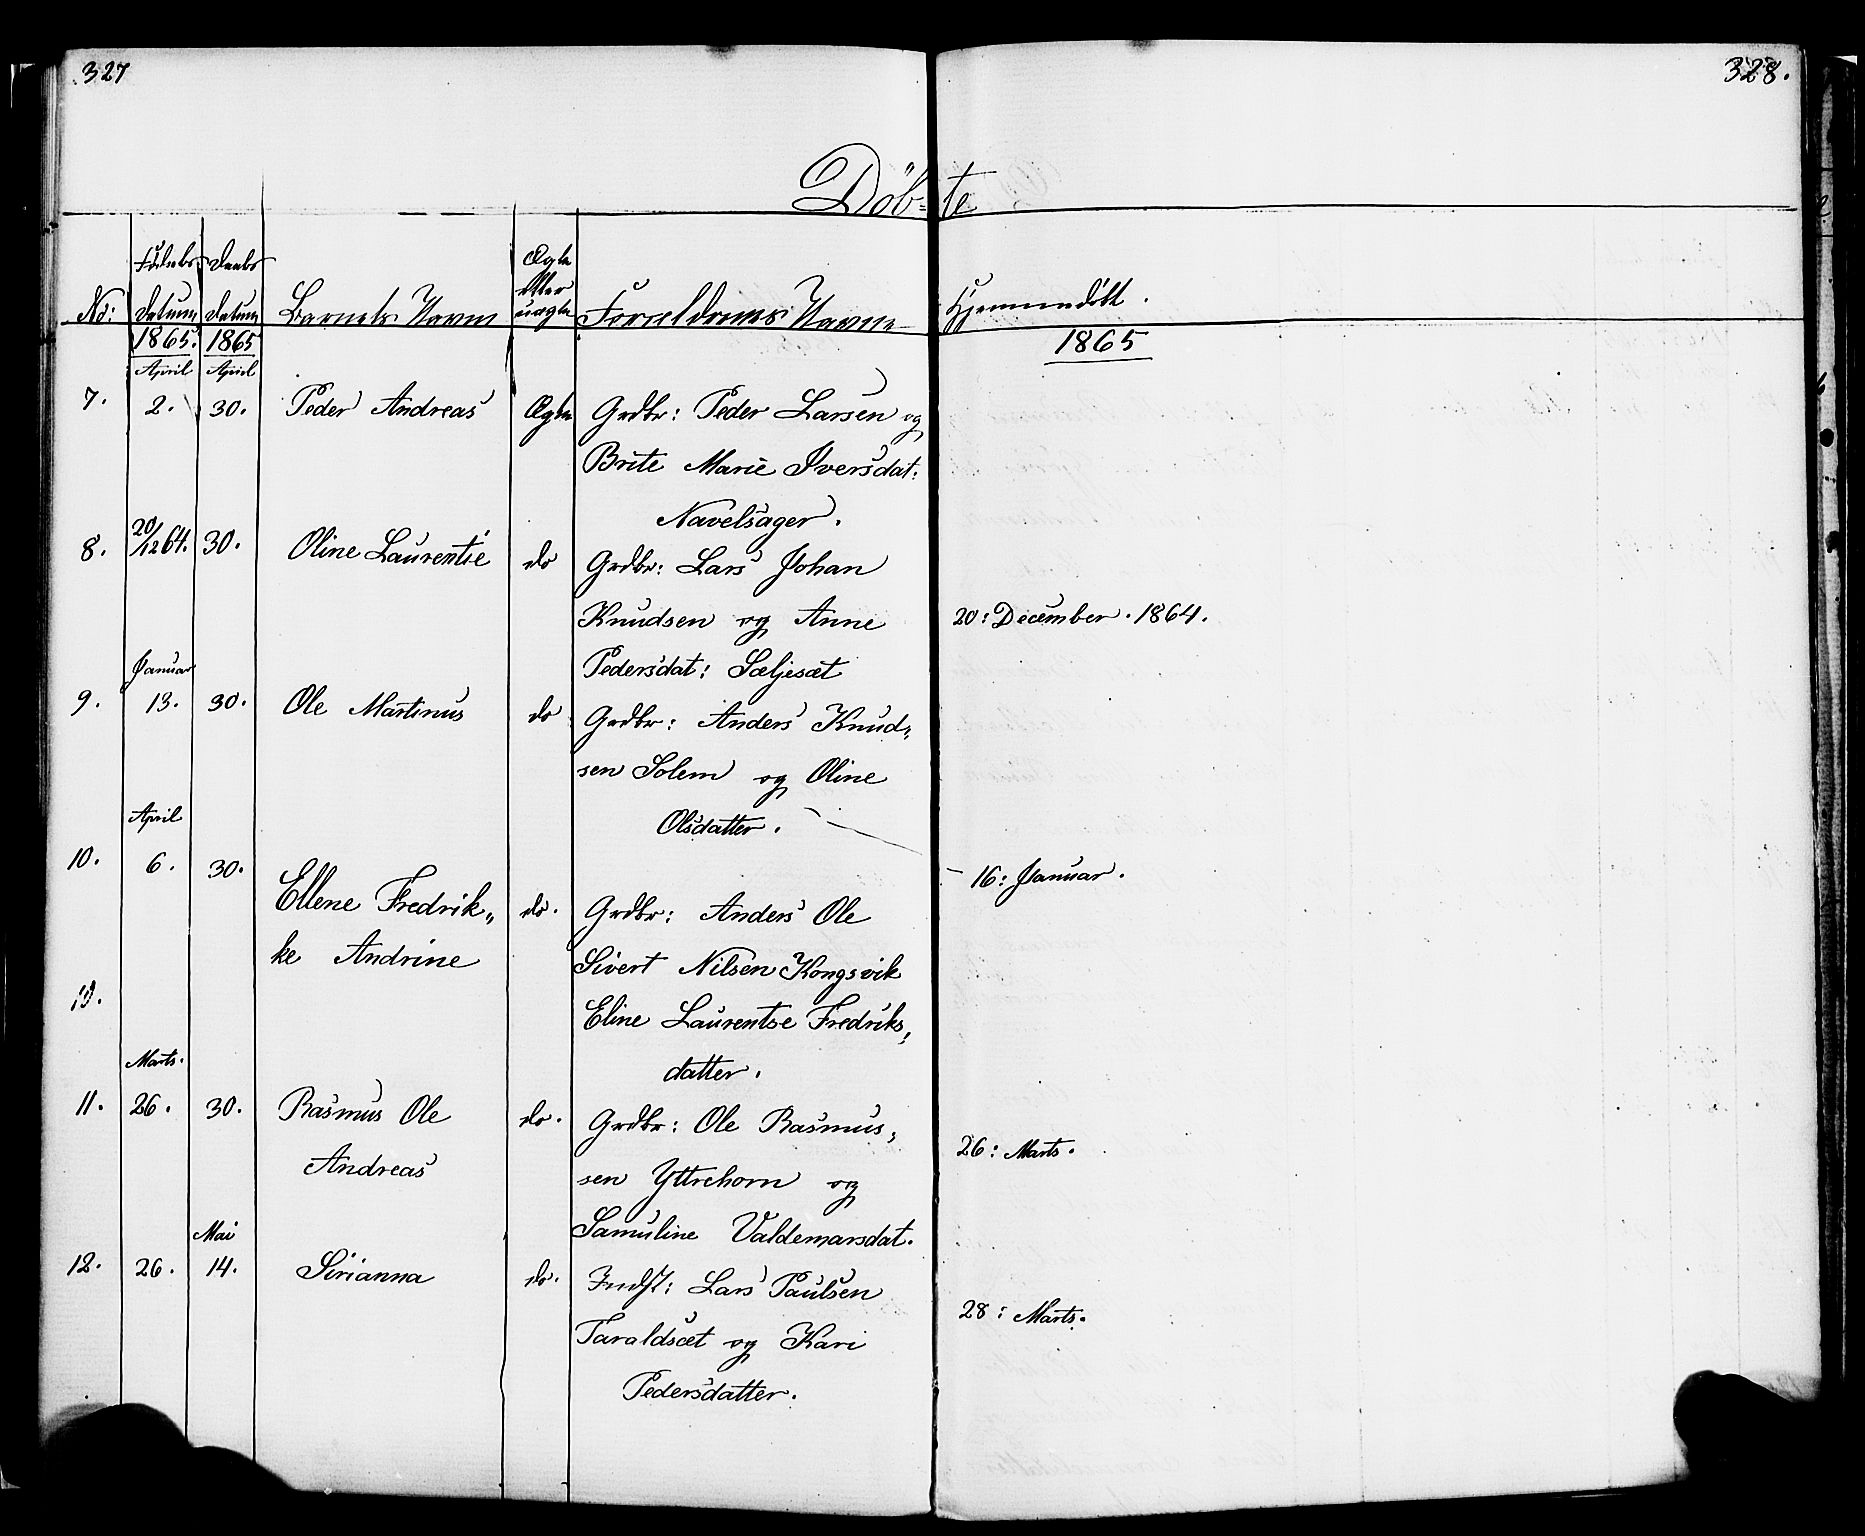 327
328.
Döb-te
No: Fødsels Datum Daabs Datum Barnets Navn Ægte eller uægte Forældrenes Navne Hjemmedöbt.
1865. 1865 1865
April April
7. 2. 30. Peder Andreas Ægte Grdbr: Peder Larsen og
Brite Marie Iversdat:
Navelsager.
8. 20/12 64. 30. Oline Laurentie do Grdbr: Lars Johan
Knudsen og Anne 20: December. 1864.
Pedersdat: Sæljesæt
Januar
9. 13. 30. Ole Martinus do Grdbr: Anders Knud„
sen Solem og Oline
Olsdatter.
April
10. 6. 30. – 16: Januar.
Ellene Fredrik„ do. Grdbr: Anders Ole
ke Andrine Sivert Nilsen Kongsvik
10. Eline Laurentse Fredriks„
datter.
Marts.
11. 26. 30. Rasmus Ole do. Grdbr: Ole Rasmus„
26: Marts.
Andreas sen Yttrehorn og
Samuline Valdemarsdat.
Mai
12. 26. 14. Sirianna do. Indst: Lars Paulsen
28: Marts.
Taraldsæt og Kari
Pedersdatter.